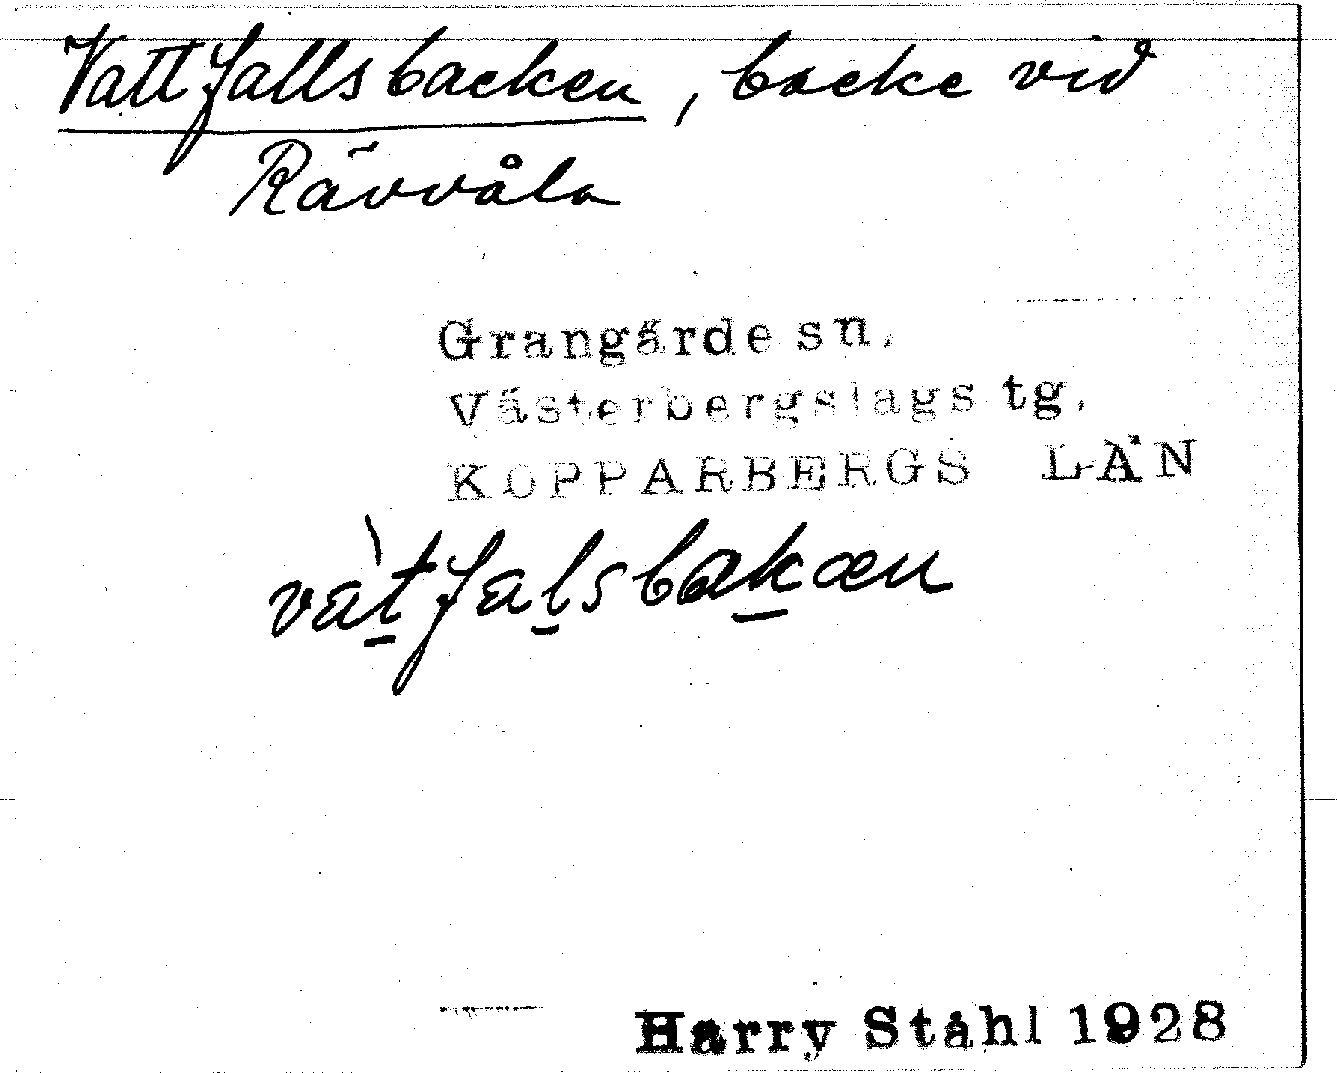 Vattfallsbacken, backe vid
Rävvåla
Grangärde sn.
Västerbergslags tg.
KOPPARBERGS LÄN
vàt̲fal̲sbak̲æn
Harry Ståhl 1928